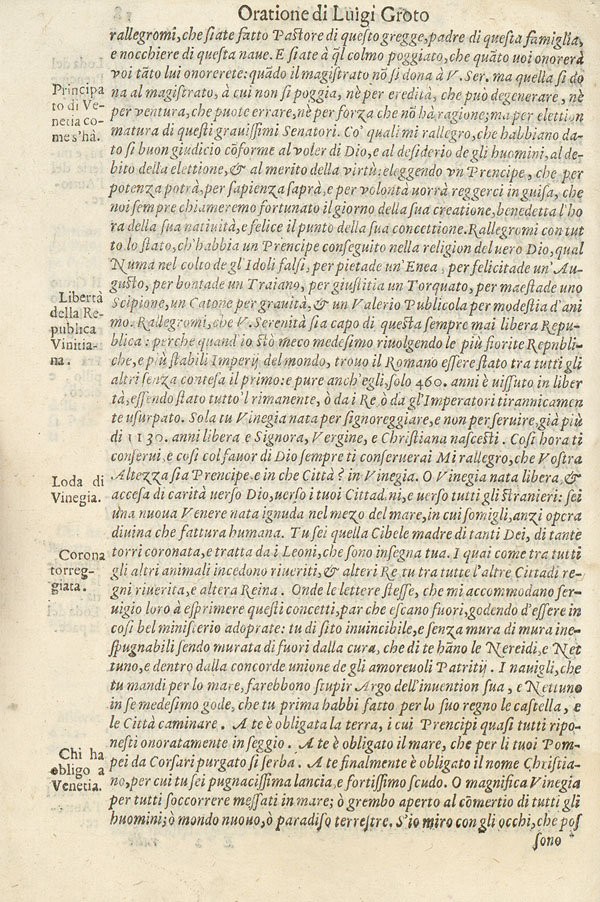 Oratione di Luigi Groto
rallegromi, che siate fatto Pastore di questo gregge, padre di questa famiglia,
e nocchiere di questa naue. E siate à q̃l colmo poggiato, che quãto uoi onorerà
voi tãto lui onorerete: quãdo il magistrato nõ si dona à V. Ser. ma quella si do
na al magistrato, à cui non si poggia, nè per eredità, che può degenerare, nè
per ventura, che puote errare, nè per forza che nõ hà ragione; ma per elettion
matura di questi grauissimi Senatori. Co' quali mi rallegro, che habbiano da-
to si buon giudicio cõforme al voler di Dio, e al desiderio de gli huomini, al de-
bito della elettione, & al merito della virtù; eleggendo vn Prencipe, che per
potenza potrà, per sapienza saprà, e per volontà uorrà reggerci in guisa, che
noi sempre chiameremo fortunato il giorno della sua creatione, benedetta l'ho
ra della sua natiuità, e felice il punto della sua concettione. Rallegromi con tut
to lo stato, ch'habbia un Prencipe conseguito nella religion del uero Dio, qual
Numa nel colto de gl'Idoli falsi, per pietade un'Enea, per felicitade un'Au-
gusto, per bontade un Traiano, per giustitia un Torquato, per maestade uno
Scipione, un Catone per grauità, & un Valerio Publicola per modestia d'ani
mo. Rallegromi, che V. Serenità sia capo di questa sempre mai libera Repu-
blica: perche quand'io stò meco medesimo riuolgendo le più fiorite Republi-
che, e più stabili Imperij del mondo, trouo il Romano essere stato tra tutti gli
altri senza contesa il primo: e pure anch'egli, solo 460. anni è uissuto in liber
tà, essendo stato tutto'l rimanente, ò da i Re, ò da gl'Imperatori tirannicamen
te usurpato. Sola tu Vinegia nata per signoreggiare, e non per seruire, già più
di 1130. anni libera e Signora, Vergine, e Christiana nascesti. Cosi hora ti
conserui, e cosi col fauor di Dio sempre ti conseruerai Mi rallegro, che Vostra
Altezza sia Prencipe, e in che Città? in Vinegia. O Vinegia nata libera &
accesa di carità uerso Dio, uerso i tuoi Cittadini, e uerso tutti gli stranieri: sei
una nuoua Venere nata ignuda nel mezo del mare, in cui somigli, anzi opera
diuina che fattura humana. Tu sei quella Cibele madre di tanti Dei, di tante
torri coronata, e tratta da i Leoni, che sono insegna tua. I quai come tra tutti
gli altri animali incedono riueriti, & alteri Re, tu tra tutte l'altre Cittadi re-
gni riuerita, e altera Reina. Onde le lettere stesse, che mi accommodano ser-
uigio loro à esprimere questi concetti, par che escano fuori, godendo d'essere in
cosi bel ministerio adoprate: tu di sito inuincibile, e senza mura di mura ine-
spugnabili sendo murata di fuori dalla cura, che di te hãno le Nereidi, e Net
tuno, e dentro dalla concorde unione de gli amoreuoli Patritij. I nauigli, che
tu mandi per lo mare, farebbono stupir Argo dell'inuention sua, e Nettuno
in se medesimo gode, che tu prima habbi fatto per lo suo regno le castella, e
le Città caminare. A te è obligata la terra, i cui Prencipi quasi tutti ripo-
nesti onoratamente in seggio. A te è obligato il mare, che per li tuoi Pom-
pei da Corsari purgato si serba. A te finalmente è obligato il nome Christia-
no, per cui tu sei pugnacissima lancia, e fortissimo scudo. O magnifica Vinegia
per tutti soccorrere messati in mare; ò grembo aperto al cõmertio di tutti gli
huomini; ò mondo nuouo, ò paradiso terrestre. S'io miro con gli occhi, che pos
sono
Principa
to di Ve-
netia co-
me s'hà.
Libertà
della Re-
publica
Vinitia-
na.
Loda di
Vinegia.
Corona
torreg-
giata.
Chi ha
obligo a
Venetia.